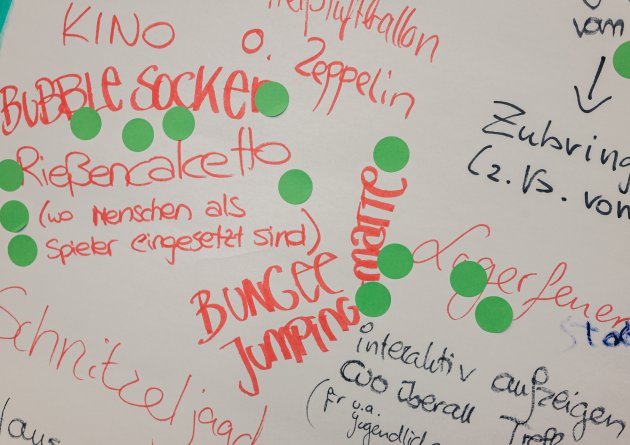 KINO
Heißluftballon
o. Zeppelin
vom
BUBBLE SOCKER
Zubring
(z.B. vom
Rießencalcetto
(wo Menschen als
Spieler eingesetzt sind)
BUNGEE
JUMPING
MATTE
Lagerfeuer
Schnitzeljagd
interaktiv aufzeigen
wo überall Treff
(für u.a.
Jugendlich
aus